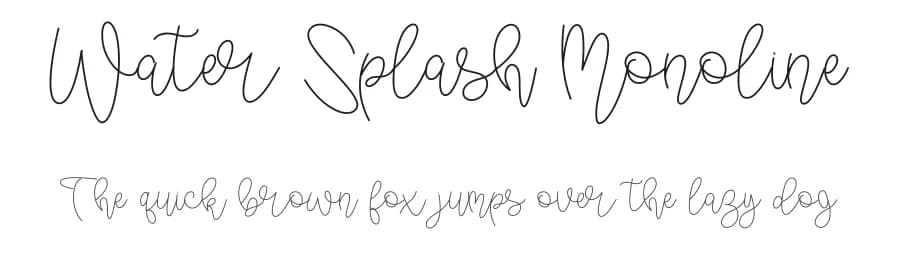 Water Splash Monoline
The quick brown fox jumps over the lazy dog